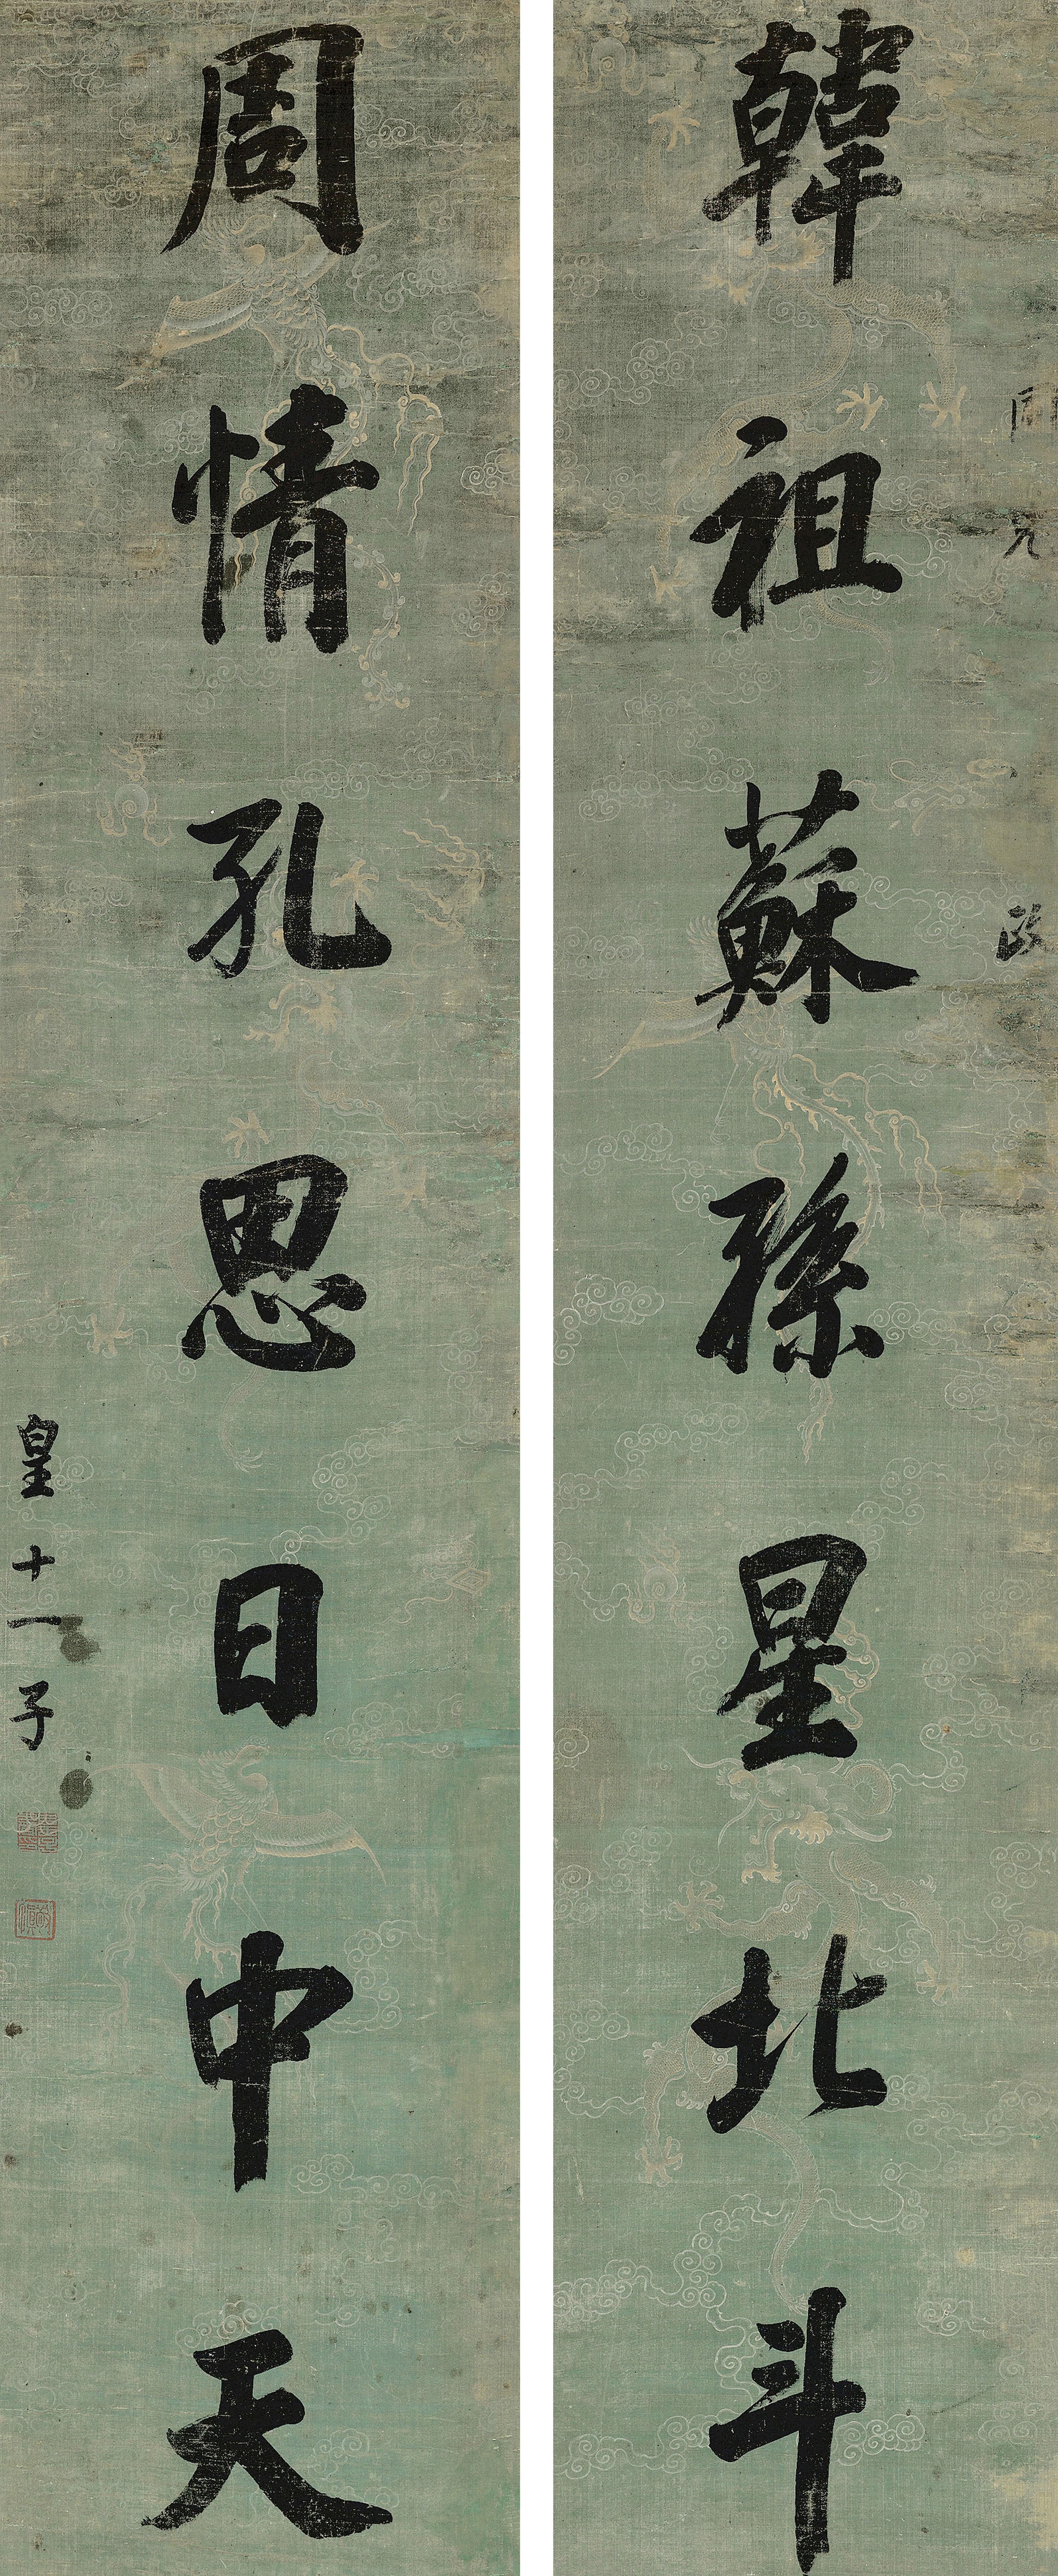 韓祖蘇孫星北斗
周情孔思日中天
皇十一子